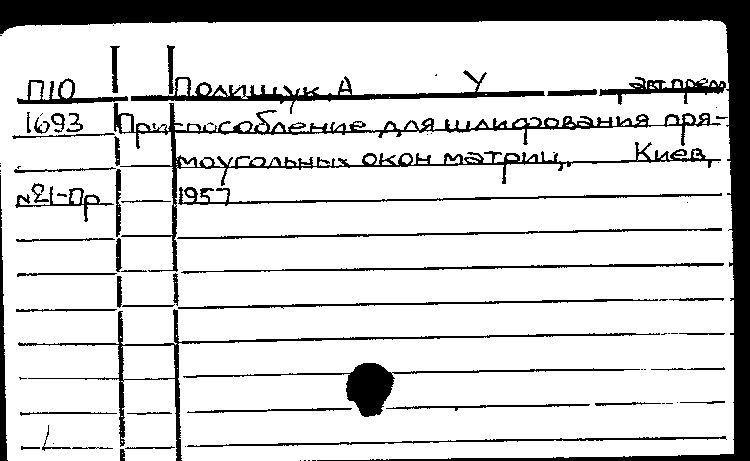 П10 Полищук, А У авт. предл.
1693 Приспособление для шлифования пря-
моугольных окон матриц. Киев,
№21-Пр 1957